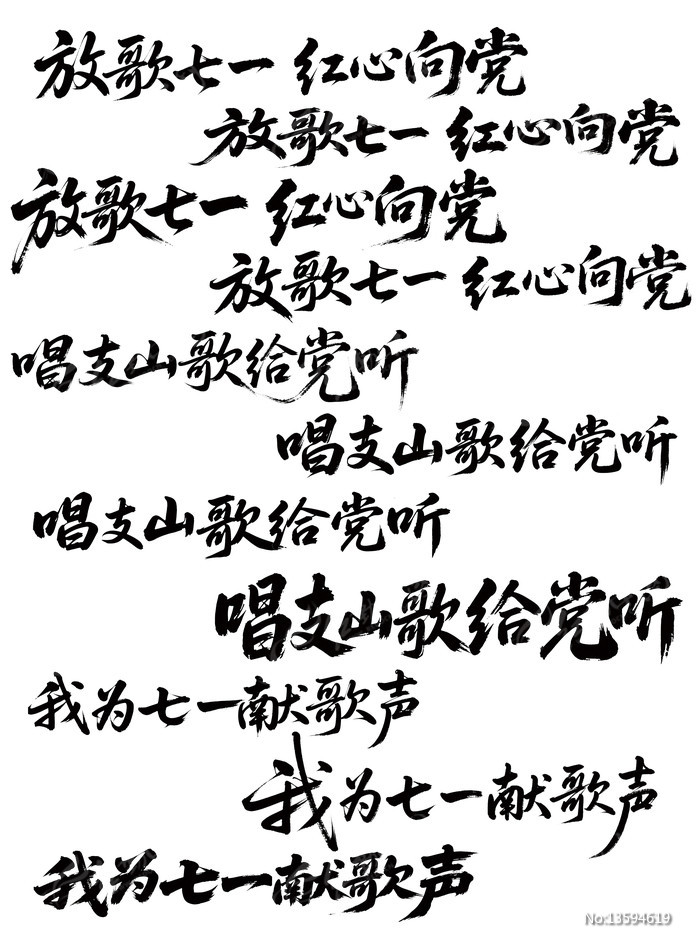 放歌七一 红心向党
放歌七一 红心向党
放歌七一 红心向党
放歌七一 红心向党
唱支山歌给党听
唱支山歌给党听
唱支山歌给党听
唱支山歌给党听
我为七一献歌声
我为七一献歌声
我为七一献歌声
No:13594619